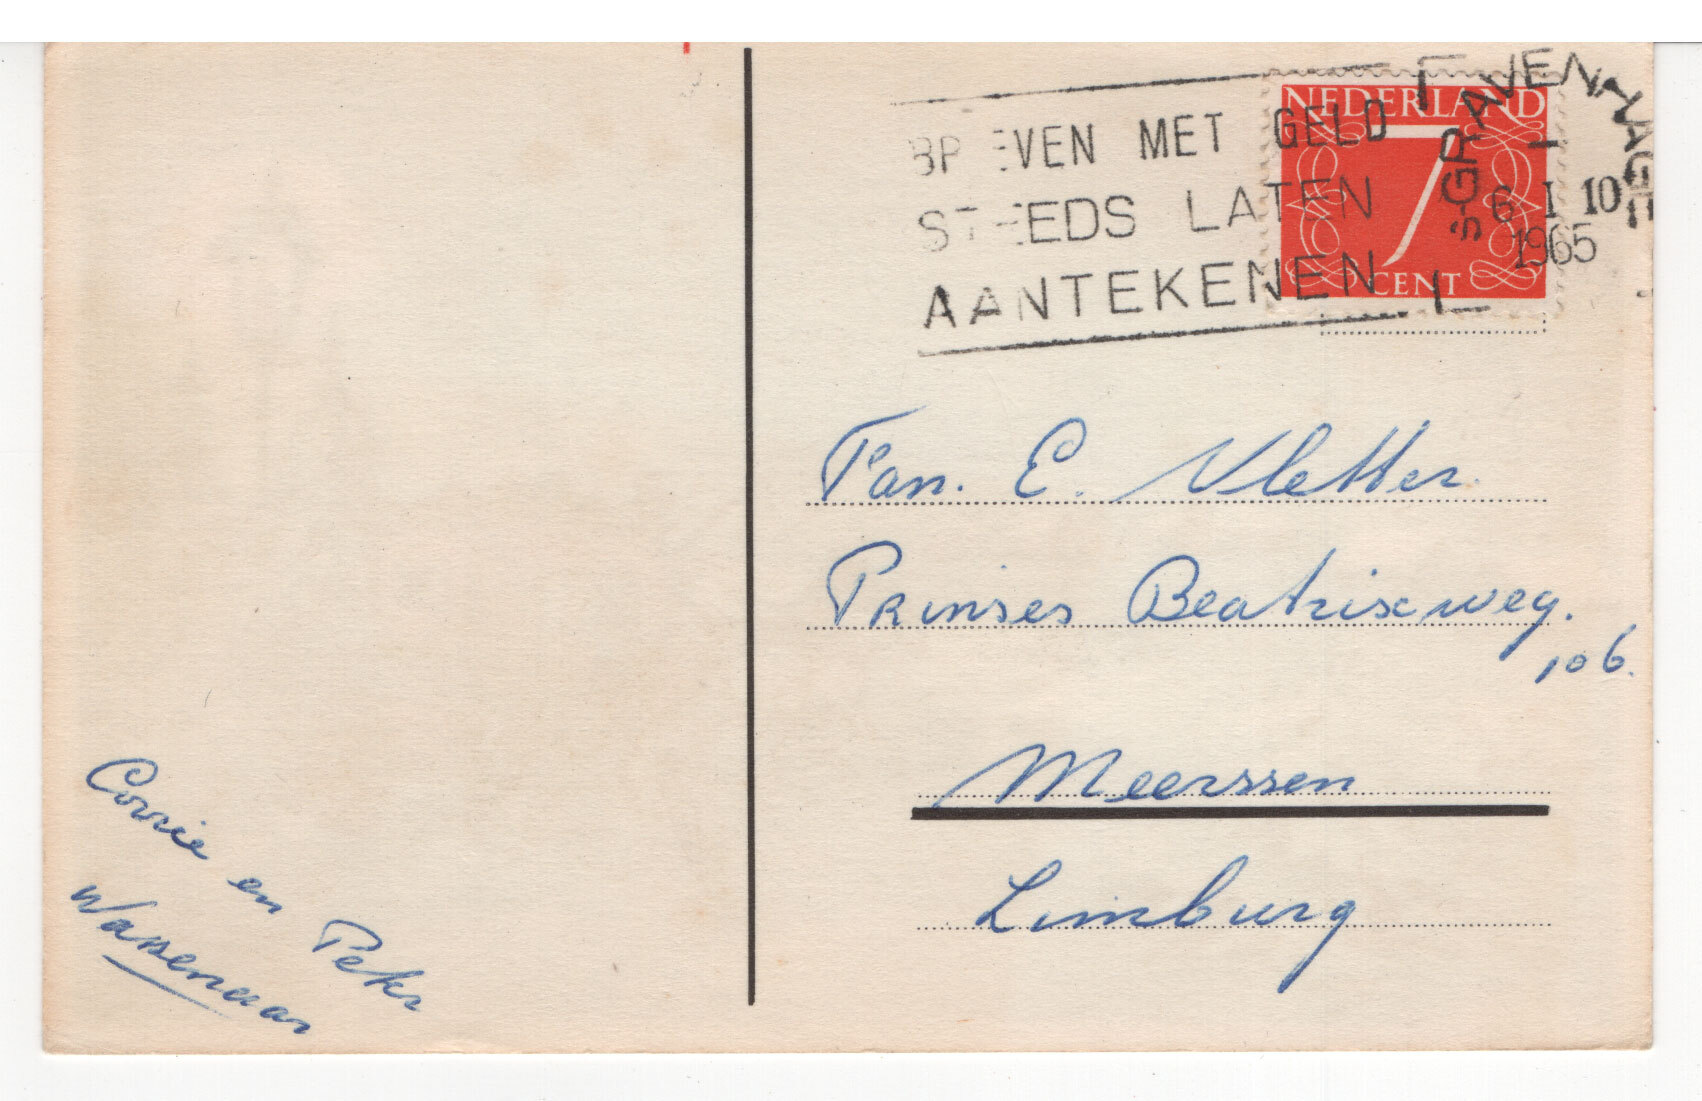 BRIEVEN MET GELD
STEEDS LATEN
AANTEKENEN
NEDERLAND
7
CENT
's-GRAVENHAGE
6 I 10
1965
Fam. E. Vletter.
Prinses Beatrixweg.
106.
Meerssen
Limburg
Corrie en Peter
Wassenaar